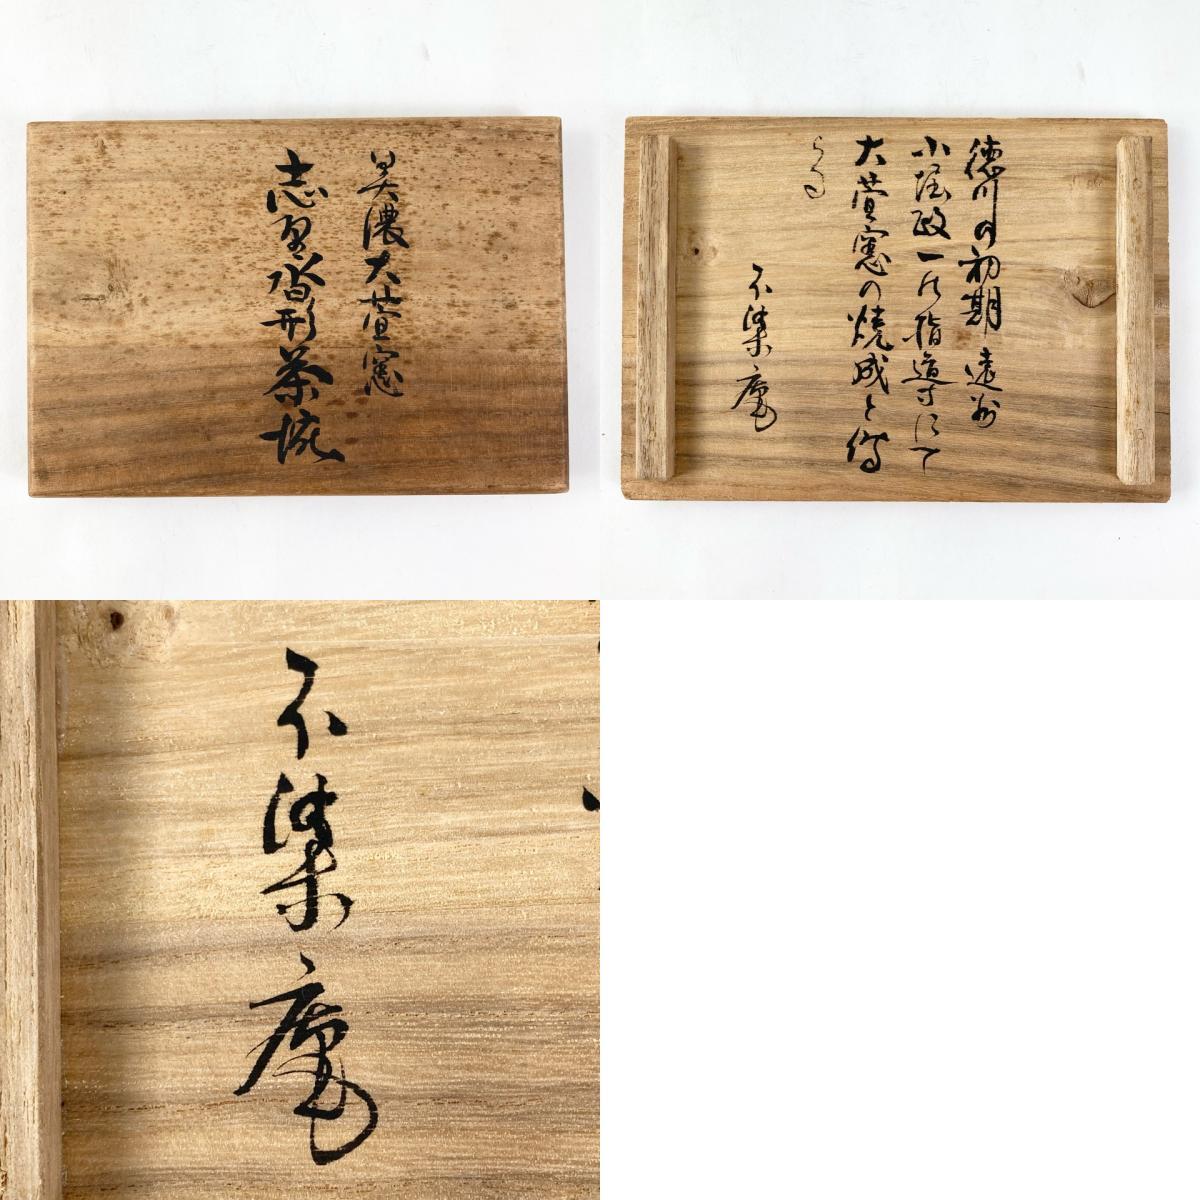 美濃大萱窯
志野沓形茶埦
徳川の初期遠州
小堀政一の指導にて
大萱窯の焼成と傳
らる
不染庵
不染庵